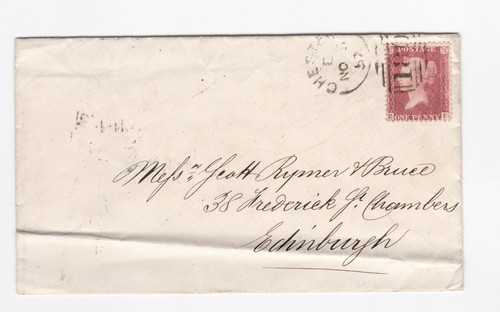 POSTAGE
ONE PENNY
NO
57
Messrs Scott Rymer & Bruce
38 Frederick St. Chambers
Edinburgh